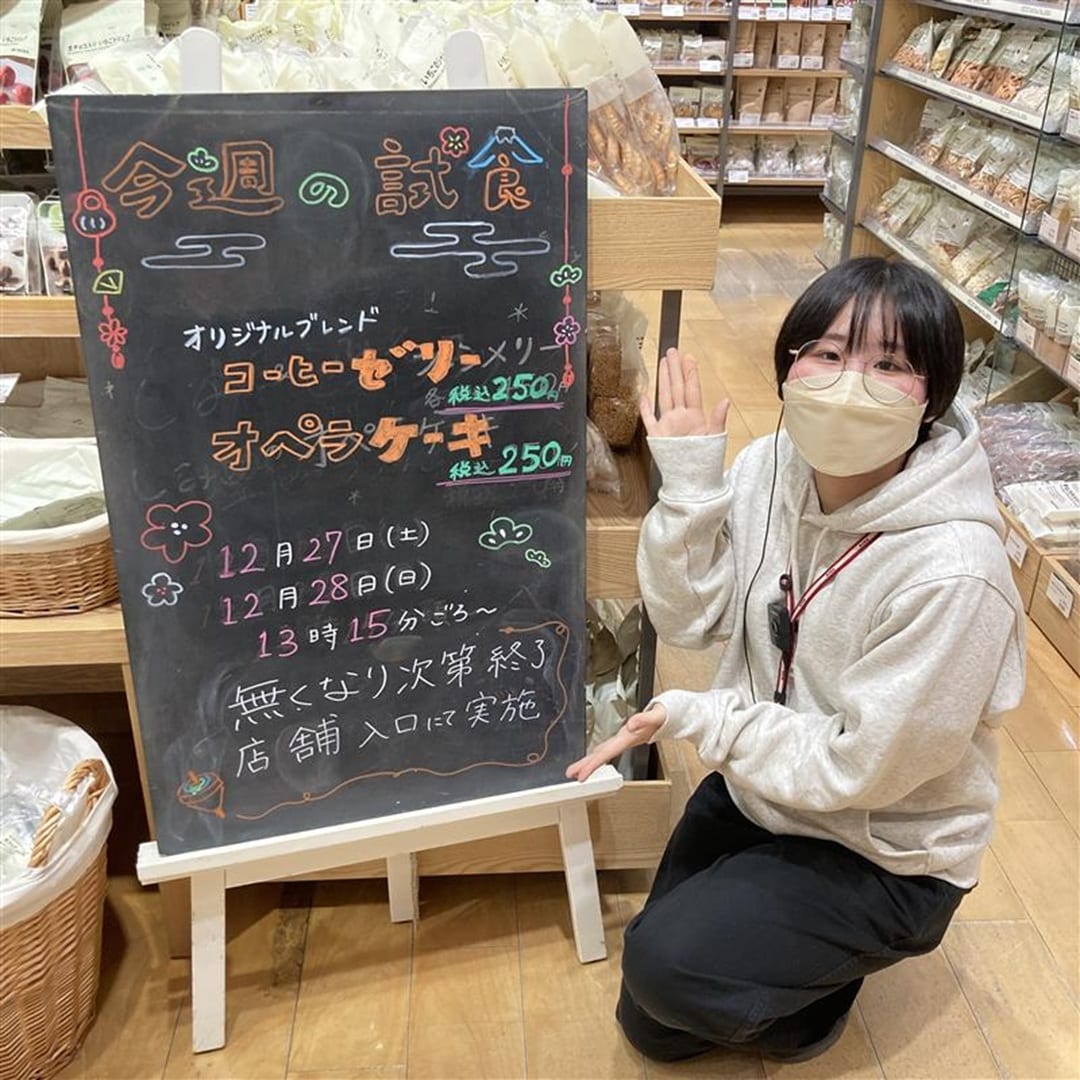 今週の試食
オリジナルブレンド
コーヒーゼリー
税込250円
オペラケーキ
税込250円
12月27日(土)
12月28日(日)
13時15分ごろ〜
無くなり次第終了
店舗入口にて実施